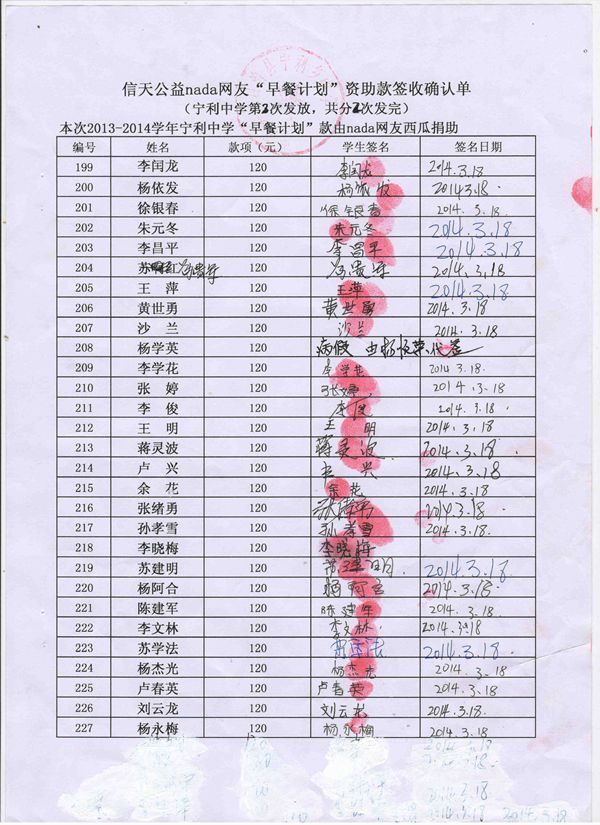 信天公益nada网友“早餐计划”资助款签收确认单
（宁利中学第2次发放，共分2次发完）
本次2013-2014学年宁利中学“早餐计划”款由nada网友西瓜捐助
编号 姓名 款项（元） 学生签名 签名日期
199 李闰龙 120 李闰龙 2014.3.18
200 杨依发 120 杨依发 2014.3.18.
201 徐银春 120 徐银春 2014.3.18.
202 朱元冬 120 朱元冬 2014.3.18
203 李昌平 120 李昌平 2014.3.18
204 120 2014.3.18
205 王 萍 120 王萍 2014.3.18
206 黄世勇 120 黄世勇 2014.3.18.
207 沙 兰 120 沙兰 2014.3.18
208 杨学英 120 病假 由 代签
209 李学花 120 李学花 2014.3.18.
210 张 婷 120 张婷 2014.3.18
211 李 俊 120 李俊 2014.3.18.
212 王 明 120 王 明 2014.3.18.
213 蒋灵波 120 蒋灵波 2014.3.18.
214 卢 兴 120 卢 兴 2014.3.18
215 余 花 120 余花 2014.3.18
216 张绪勇 120 张绪勇 2014.3.18.
217 孙孝雪 120 孙孝雪 2014.3.18.
218 李晓梅 120 李晓梅
219 苏建明 120 苏建明 2014.3.18
220 杨阿合 120 杨阿合 2014.3.18
221 陈建军 120 陈建军 2014.3.18
222 李文林 120 李文林 2014.3.18
223 苏学法 120 苏学法 2014.3.18
224 杨杰光 120 杨杰光 2014.3.18
225 卢春英 120 卢春英 2014.3.18.
226 刘云龙 120 刘云龙 2014.3.18.
227 杨永梅 120 杨永梅 2014.3.18